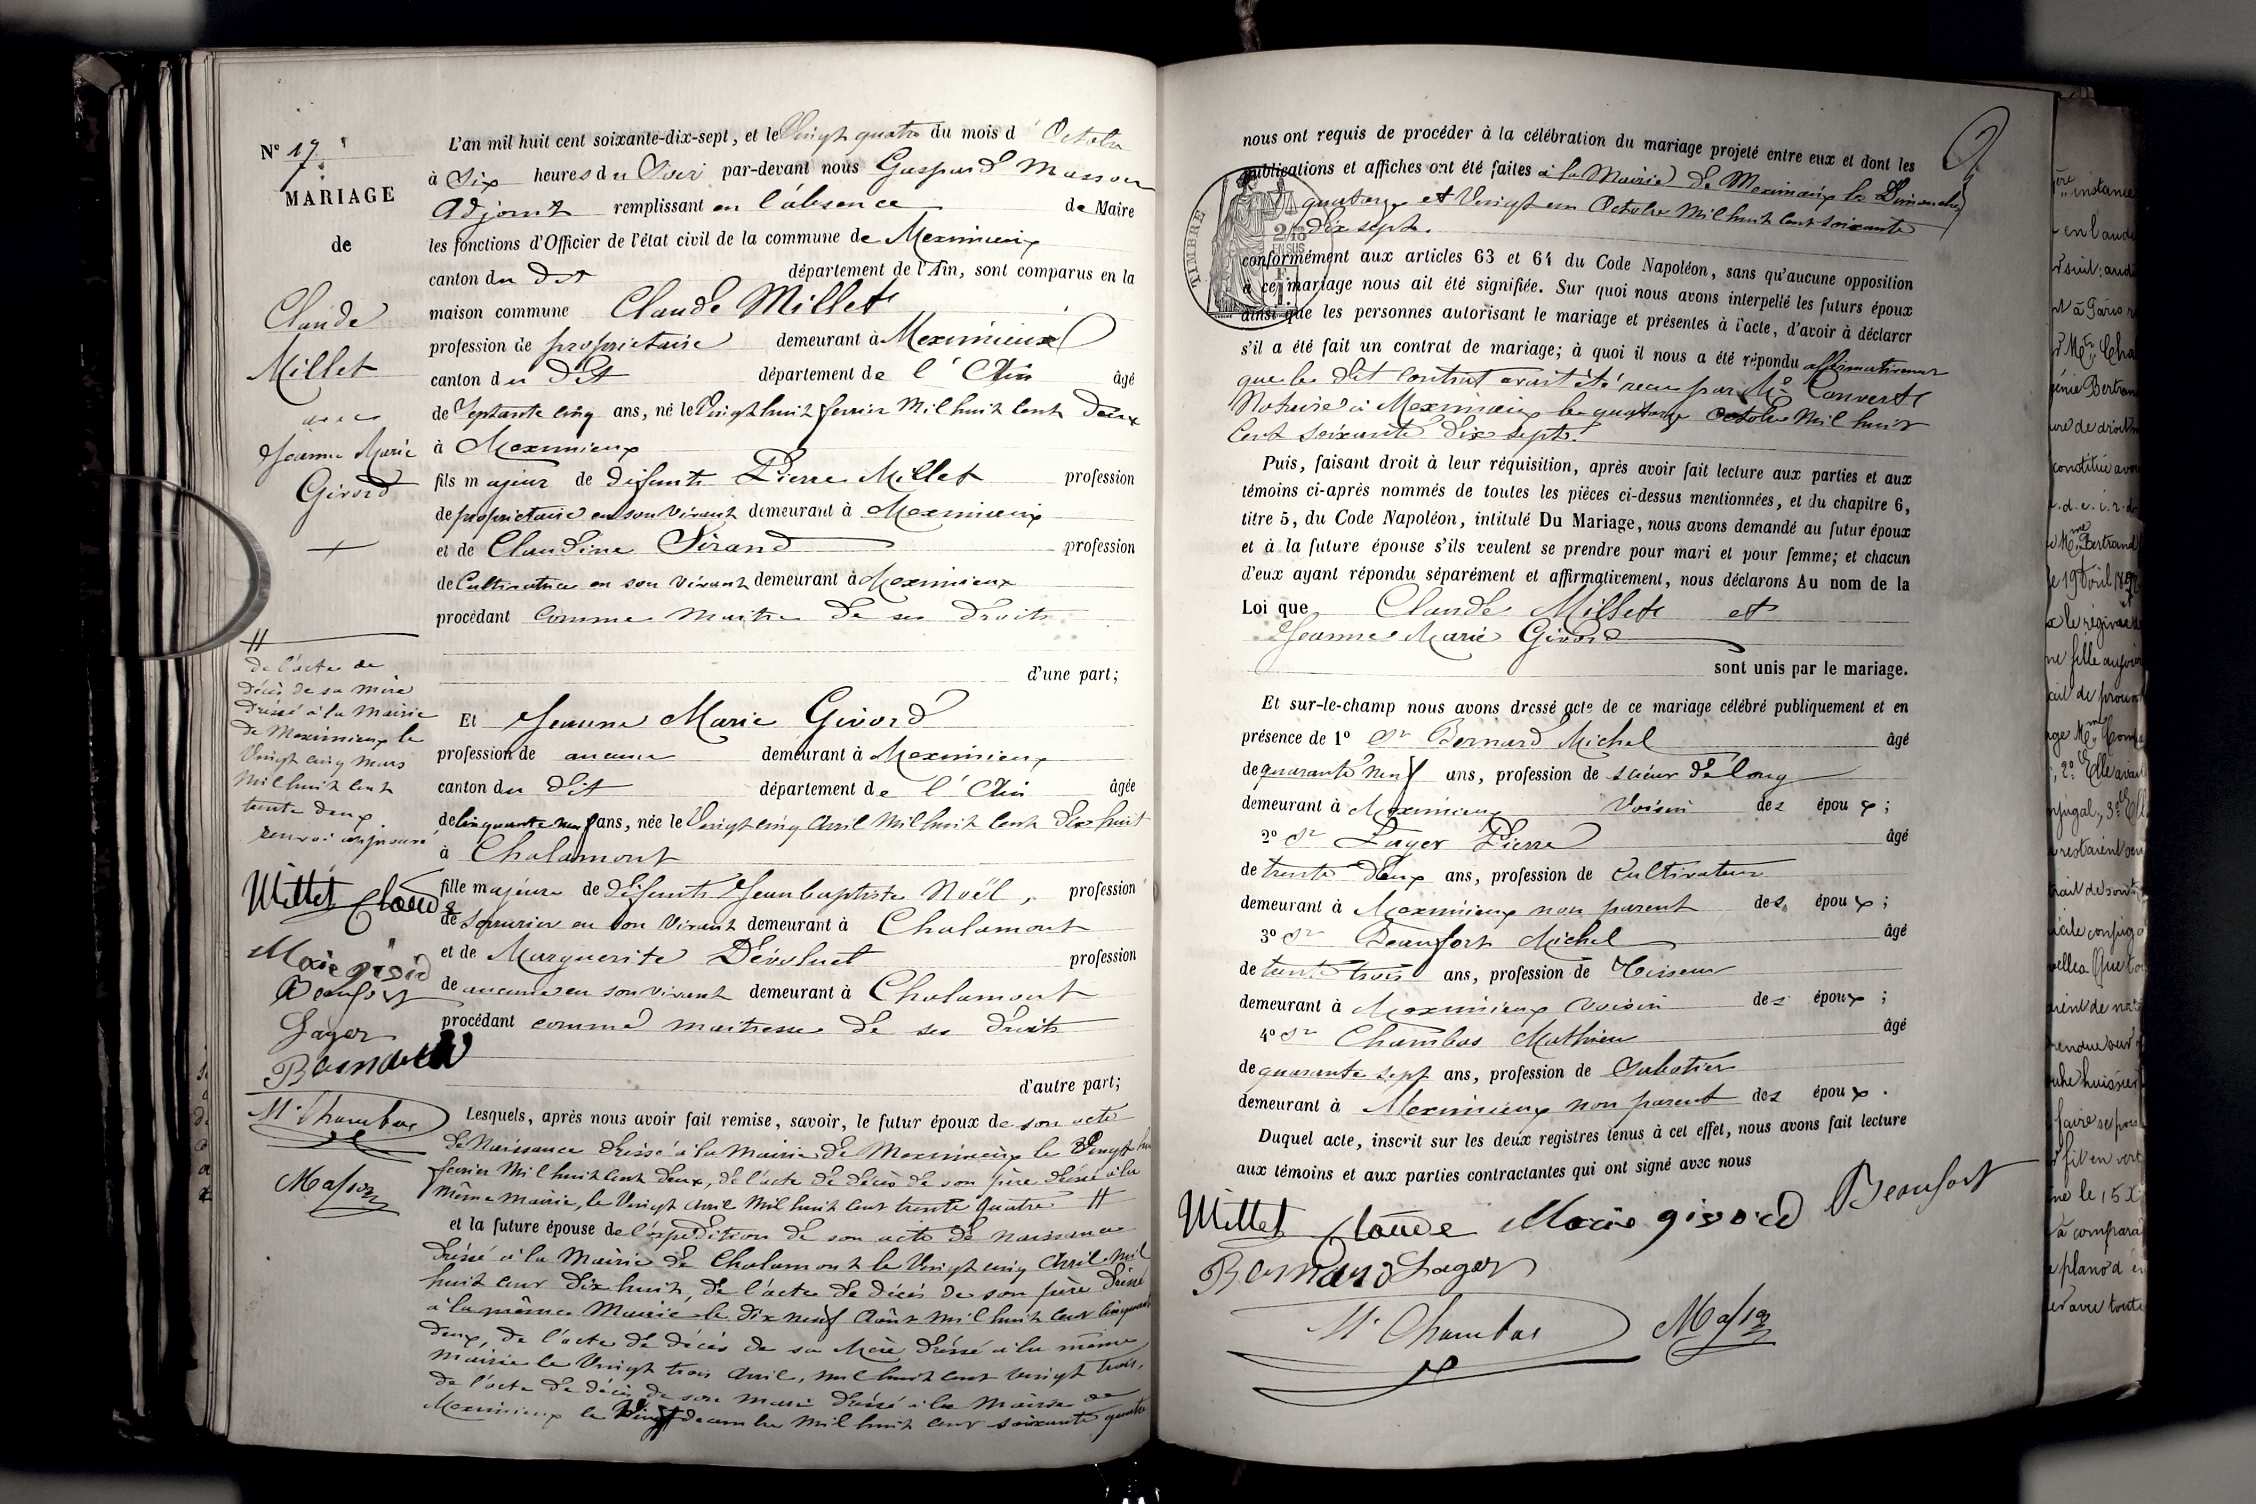 N° 17
MARIAGE
de
Claude
Millet
avec
Jeanne Marie
Givord
L'an mil huit cent soixante-dix-sept, et le Vingt quatre du mois d'Octobre
à Six heures du Soir par-devant nous Gaspard Masson
Adjoint remplissant en l'absence de Maire
les fonctions d'Officier de l'état civil de la commune de Meximieux
canton du dit département de l'Ain, sont comparus en la
maison commune Claude Millet
profession de propriétaire demeurant à Meximieux
canton du dit département de l'Ain âgé
de Septante cinq ans, né le Vingt huit fevrier Mil huit Cent Deux
à Meximieux
fils majeur de défunts Pierre Millet profession
de propriétaire en son vivant demeurant à Meximieux
et de Claudine Sirand profession
de Cultivatrice en son vivant demeurant à Meximieux
procédant comme maître de ses droits
d'une part;
Et Jeanne Marie Givord
profession de aucune demeurant à Meximieux
canton du dit département de l'Ain âgée
de Cinquante neuf ans, née le Vingt cinq Avril Mil huit Cent Dix huit
à Chalamont
fille majeure de défunts Jean baptiste Noël, profession
de Serrurier en son vivant demeurant à Chalamont
et de Marguerite profession
de aucune en son vivant demeurant à Chalamont
procédant comme maitresse de ses droits
d'autre part;
Lesquels, après nous avoir fait remise, savoir, le futur époux de son acte
de Naissance dressé à la Mairie de Meximieux le Vingt huit
fevrier Mil huit Cent deux, de l'acte de décès de son père dressé à la
même mairie, le Vingt Avril Mil huit Cent trente quatre #
et la future épouse de l'expédition de son acte de naissance
dressé à la Mairie de Chalamont le Vingt cinq Avril Mil
huit Cent dix huit, de l'acte de décès de son père dressé
à la même Mairie le dix neuf Août Mil huit Cent Cinquante
deux, de l'acte de décès de sa Mère dressé à la même
Mairie le Vingt trois Avril, mil huit Cent vingt trois,
de l'acte de décès de son mari dressé à la Mairie de
Meximieux le Vingt decembre Mil huit Cent soixante quatre
#
de l'acte de
décès de sa mère
dressé à la Mairie
de Meximieux le
Vingt cinq Mars
Mil huit Cent
trente deux.
renvoi approuvé
Millet Claude
Marie givord
Beaufort
Layer
Bernard
M. Chambas
Masson
nous ont requis de procéder à la célébration du mariage projeté entre eux et dont les
publications et affiches ont été faites à la Mairie de Meximieux les Dimanches
quatorze et Vingt un Octobre Mil huit Cent soixante
dix sept.
TIMBRE
2/10
EN SUS
conformément aux articles 63 et 64 du Code Napoléon, sans qu'aucune opposition
à ce mariage nous ait été signifiée. Sur quoi nous avons interpellé les futurs époux
ainsi que les personnes autorisant le mariage et présentes à l'acte, d'avoir à déclarer
s'il a été fait un contrat de mariage; à quoi il nous a été répondu affirmativement
que le dit Contrat avait été reçu par Me Convert
Notaire à Meximieux le quatorze Octobre Mil huit
Cent Soixante dix sept.
Puis, faisant droit à leur réquisition, après avoir fait lecture aux parties et aux
témoins ci-après nommés de toutes les pièces ci-dessus mentionnées, et du chapitre 6,
titre 5, du Code Napoléon, intitulé Du Mariage, nous avons demandé au futur époux
et à la future épouse s'ils veulent se prendre pour mari et pour femme; et chacun
d'eux ayant répondu séparément et affirmativement, nous déclarons Au nom de la
Loi que Claude Millet et
Jeanne Marie Givord
sont unis par le mariage.
Et sur-le-champ nous avons dressé acte de ce mariage célébré publiquement et en
présence de 1° Sr Bernard Michel âgé
de quarante neuf ans, profession de scieur de long
demeurant à Meximieux Voisin des époux;
2° Sr Layer Pierre âgé
de trente deux ans, profession de Cultivateur
demeurant à Meximieux non parent des époux;
3° Sr Beaufort Michel âgé
de trente trois ans, profession de Tisseur
demeurant à Meximieux voisin des époux;
4° Sr Chambas Mathieu âgé
de quarante sept ans, profession de Sabotier
demeurant à Meximieux non parent des époux.
Duquel acte, inscrit sur les deux registres tenus à cet effet, nous avons fait lecture
aux témoins et aux parties contractantes qui ont signé avec nous
Millet Claude Marie givord Beaufort
Bernard Layer
M. Chambas Masson